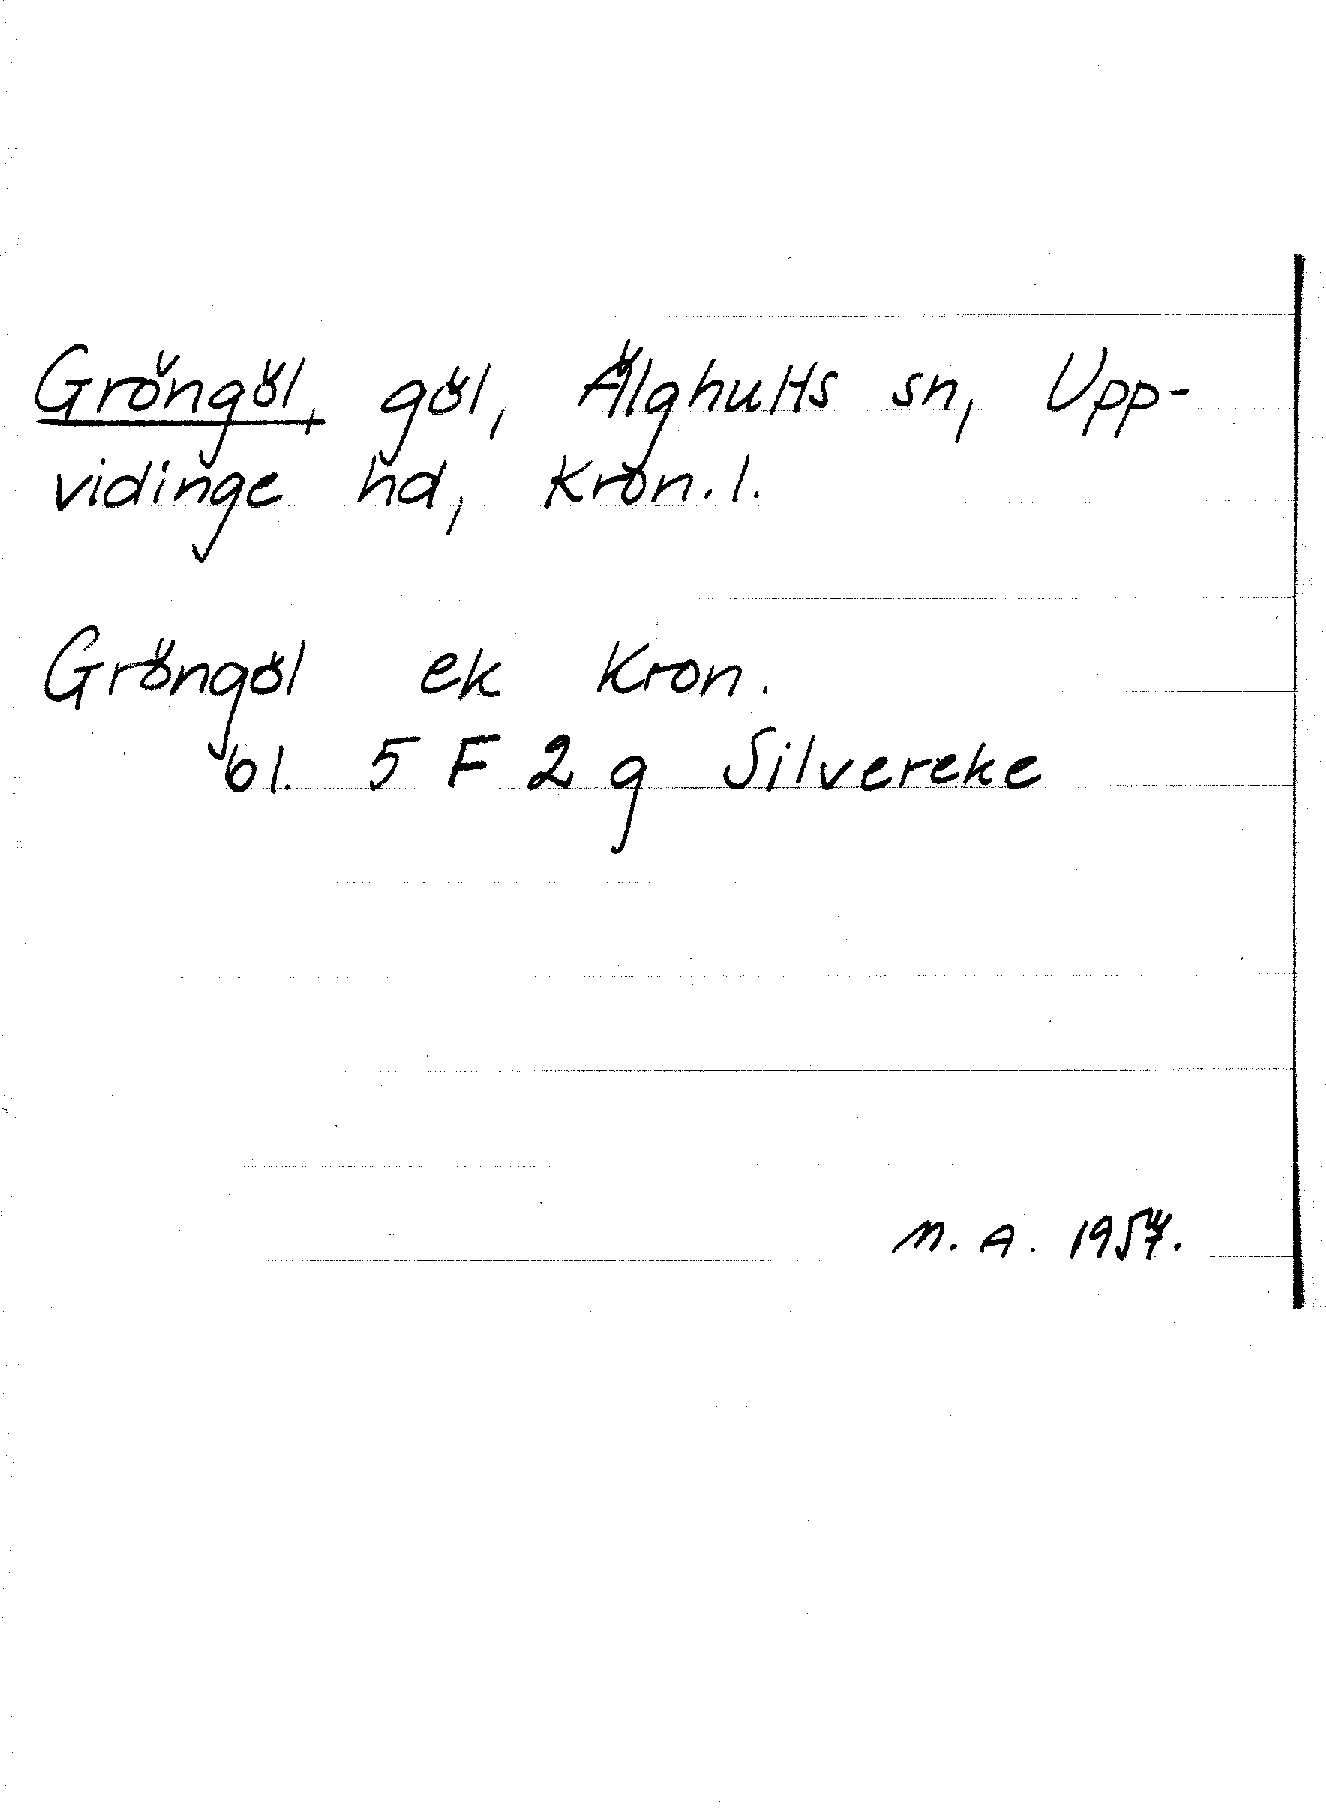 Gröngöl, göl, Älghults sn, Upp-
vidinge hd, Kron. l.
Gröngöl ek Kron.
bl. 5 F 2 g Silvereke
M. A. 1957.